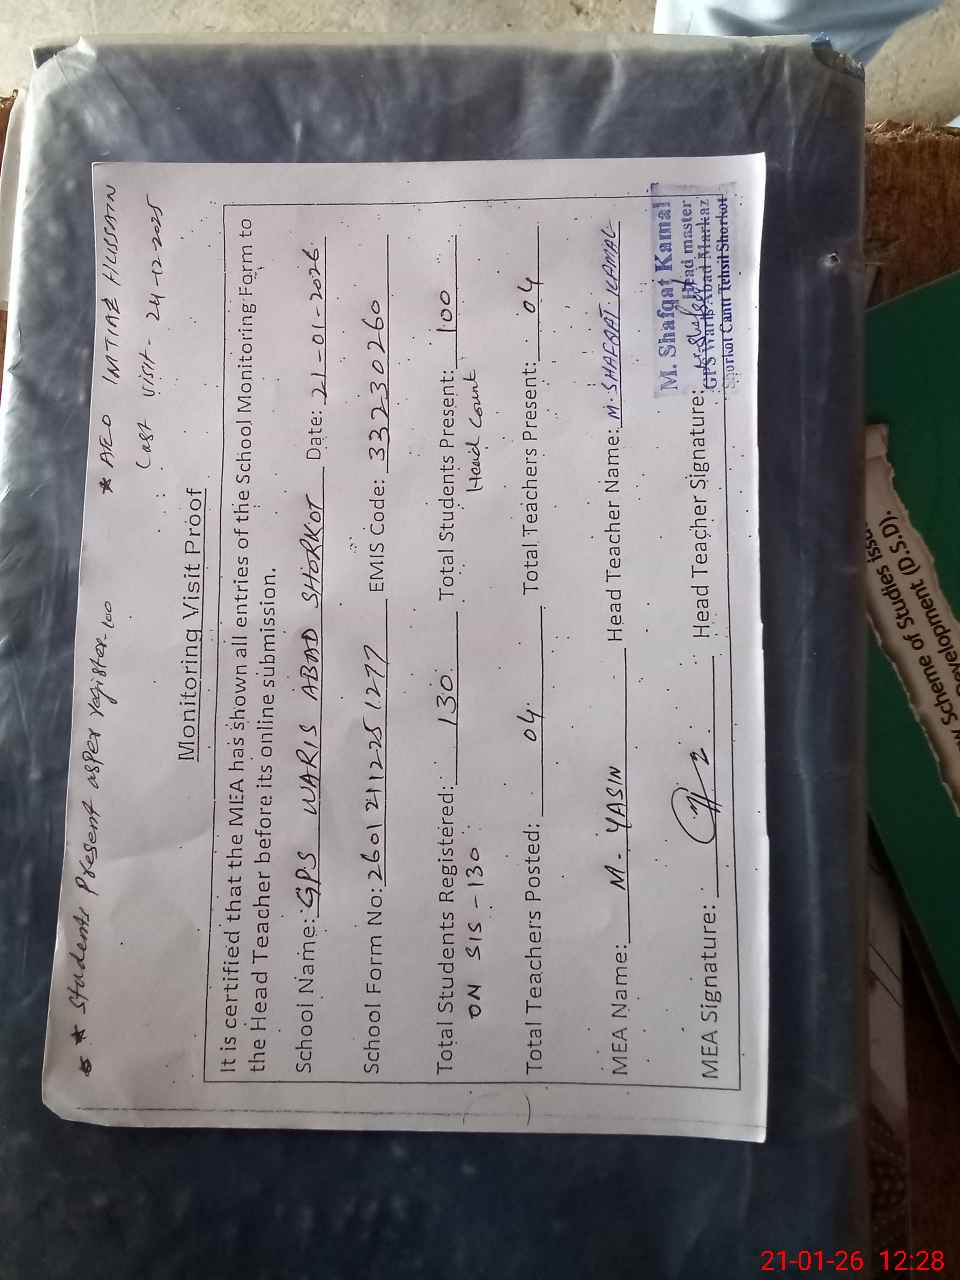 * Students Present as per register-100
* AEO IMTIAZ HUSSAIN
Last visit- 24-12-2025
Monitoring Visit Proof
It is certified that the MEA has shown all entries of the School Monitoring Form to
the Head Teacher before its online submission.
School Name: GPS WARIS ABAD SHORKOT Date: 21-01-2026
School Form No: 26012112251277 EMIS Code: 33230260
Total Students Registered: 130 Total Students Present: 100
ON SIS -130 Head Count
Total Teachers Posted: 04 Total Teachers Present: 04
MEA Name: M. YASIN Head Teacher Name: M. SHAFQAT KAMAL
MEA Signature: Head Teacher Signature:
M. Shafqat Kamal
Head master
GPS Waris Abad Markaz
Shorkot Cantt Tehsil Shorkot
Scheme of Studies issu
evelopment (D.S.D).
21-01-26 12:28